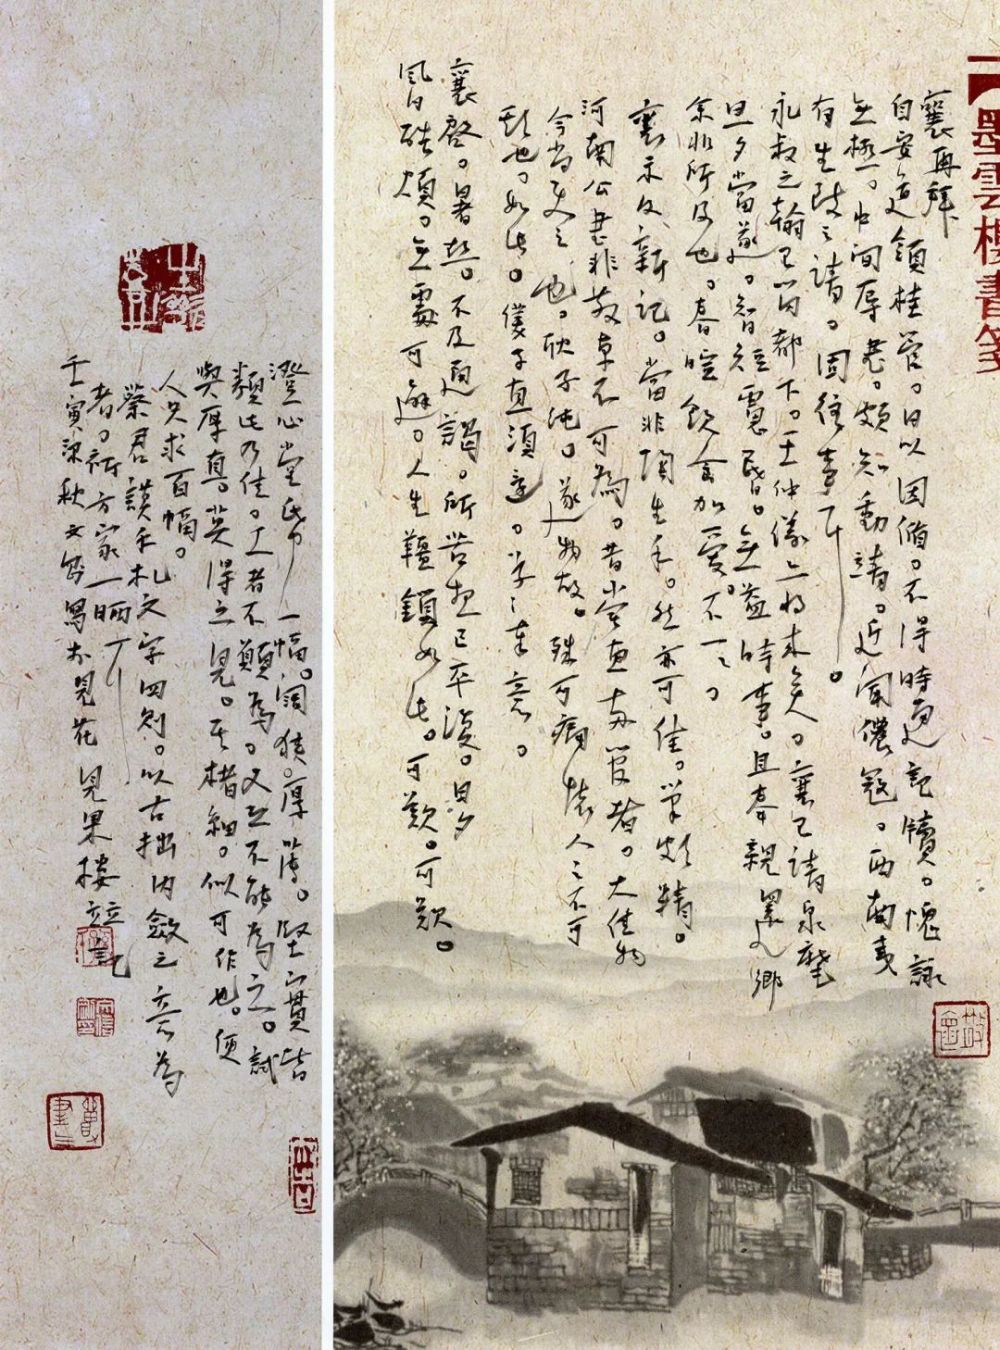 墨雲樓書箋
襄再拜
自安道領桂管。日以因循。不得時通記牘。愧詠
無極。中間辱書。頗知動靜。近聞儂寇。西南夷
有生致之請。固佳事耳。
永叔之翰已留都下。王仲儀上將來矣。襄已請泉麾
旦夕當遂。智短慮昏。無益時事。且奉親還鄉
余非所及也。春暄飲食加愛。不一一。
襄示及新記。當非陶生手。然亦可佳。筆頗精。
河南公書非散卓不可為。昔嘗惠兩管者。大佳物
今尚使之也。耿子純。遂物故。殊可痛懷人之不可
期也。如此。僕子直須還。草草奉意。
襄啓。暑熱。不及通謁。所苦想已平復。日夕
風日酷煩。無處可避。人生韁鎖如此。可歎。可歎。
澄心堂紙一幅。闊狹。厚薄。堅實皆
類此乃佳。工者不願為。又恐不能為之。試
與厚直。莫得之見。其楮細。似可作也。便
人只求百幅。
蔡君謨手札文字四則。以古拙內斂之意為
者。祈方家一晒耳
壬寅深秋文 寫於見花見果樓並記